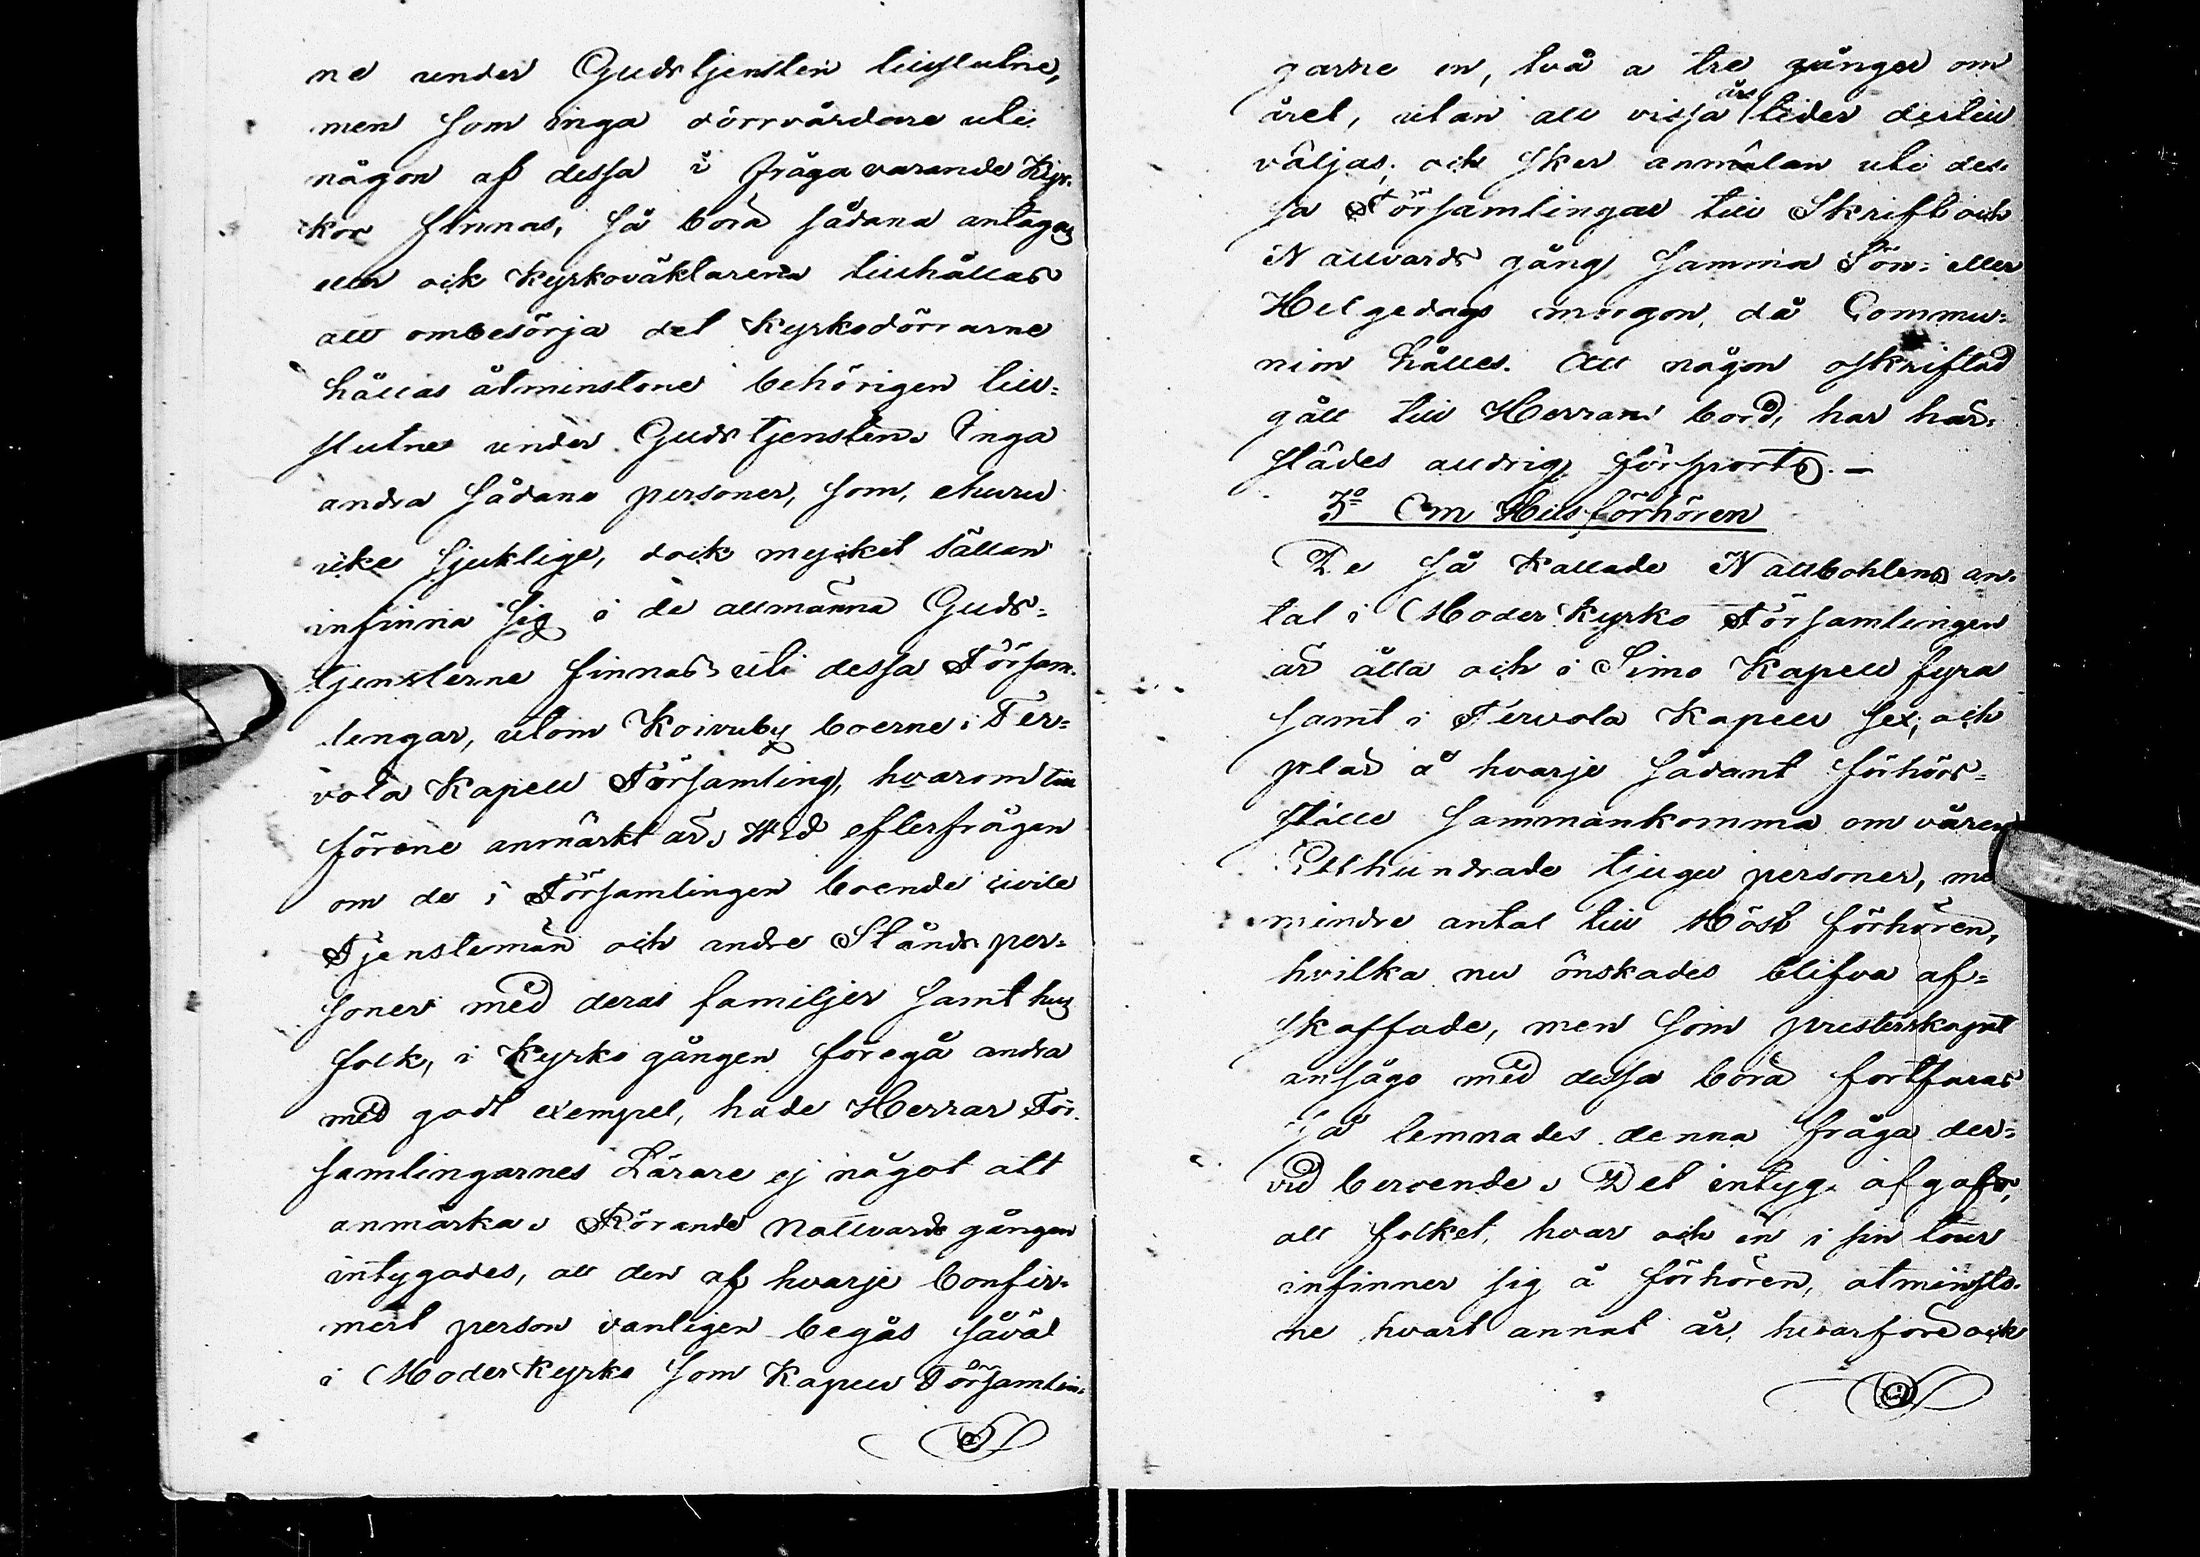 ne under Gudstjensten tillslutne,
men som inga dörrvårdare uti
någon af dessa i fråga varande Kyr-
kor finnas, så böra sådana antagas
eller ock Kyrkoväktarena tillhållas
att ombesörja det Kyrkodörrarne
hållas åtminstone behörigen till-
slutne under Gudstjensten. Inga
andra sådana personer, som, ehuru
icke sjuklige, dock mycket sällan
infinna sig i de allmänna Guds-
tjensterne finnas uti dessa Försam-
lingar, utom Koivuby boerne i Ter-
vola Kapell Församling, hvarom till
förene anmärkt är. Wid efterfrågan
om de i Församlingen boende civile
Tjenstemän och andre Stånds per-
soner med deras familjer samt hus
folk, i Kyrko gången föregå andra
med godt exempel, hade Herrar För-
samlingarnes Lärare ej något att
anmärka. Rörande Nattvards gången
intygades, att den af hvarje Confir-
mert person vanligen begås såväl
i Moder Kyrko som Kapell Församlin-
garne en, två a tre gånger om
året, utan att vissa års tider dertill
väljas; och sker anmälan uti des-
sa Församlingar till Skrift och
Nattvards gång samma Sön- eller
Helgedags morgon, då Commu-
nion hålles. Att någon oskriftad
gått till Herrans bord, har här-
städes alldrig försports. -
3o Om Husförhören
De så kallade Nattbohlens an-
tal i Moder Kyrko Församlingen
är åtta och i Simo Kapell fyra
samt i Tervola Kapell sex; och
plär å hvarje sådant förhörs-
ställe sammankomma om våren
Etthundrade tjugu personer, me
mindre antal till Höst förhören,
hvilka nu önskades blifva af-
skaffade, men som presterskapet
ansågo med dessa böra fortfaras
så lemnades denna fråga der-
vid beroende. Det intyg afgafs,
att folket, hvar och en i sin tour
infinner sig å förhören, åtminsto-
ne hvart annat år, hvarföre ock